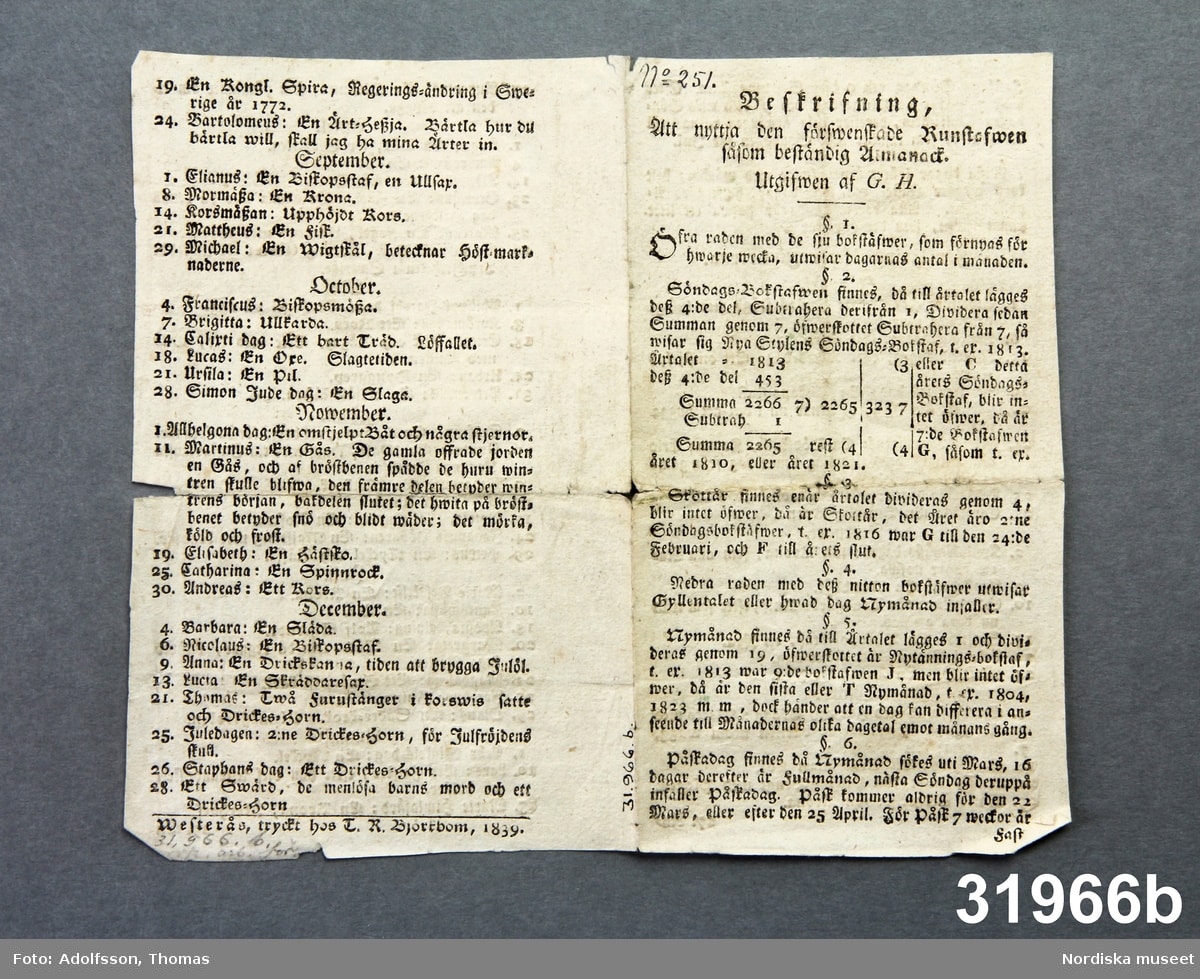 19. En Kongl. Spira, Regerings-ändring i Swe-
rige år 1772.
24. Bartolomeus: En Ärt-Heßja. Bärtla hur du
bärtla will, skall jag ha mina Ärter in.
September.
1. Elianus: En Biskopsstaf, en Ullsax.
8. Mormäßa: En Krona.
14. Korsmäßan: Upphöjdt Kors.
21. Mattheus: En Fisk.
29. Michael: En Wigtskål, betecknar Höst-mark-
naderne.
October.
4. Franciscus: Biskopsmößa.
7. Brigitta: Ullkarda.
14. Calixti dag: Ett bart Träd. Löffallet.
18. Lucas: En Oxe. Slagtetiden.
21. Ursila: En Pil.
28. Simon Jude dag: En Slaga.
Nowember.
1. Allhelgona dag: En omstjelpt Båt och några stjernor.
11. Martinus: En Gås. De gamla offrade jorden
en Gås, och af bröstbenen spådde de huru win-
tren skulle blifwa, den främre delen betyder win-
trens början, bakdelen slutet; det hwita på bröst-
benet betyder snö och blidt wäder; det mörka,
köld och frost.
19. Elisabeth: En Hästsko.
25. Catharina: En Spinnrock.
30. Andreas: Ett Kors.
December.
4. Barbara: En Släda.
6. Nicolaus: En Biskopsstaf.
9. Anna: En Drickskanna, tiden att brygga Julöl.
13. Lucia: En Skräddaresax.
21. Thomas: Twå Furustänger i korswis satte
och Drickes-Horn.
25. Juledagen: 2:ne Drickes-Horn, för Julfröjdens
skull.
26. Staphans dag: Ett Drickes-Horn.
28. Ett Swärd, de menlösa barns mord och ett
Drickes-Horn
Westerås, tryckt hos T. R. Björkbom, 1839.
31,966, b.
No 251.
Beskrifning,
Att nyttja den förswenskade Runstafwen
såsom beständig Almanack.
Utgifwen af G. H.
§. 1.
Öfra raden med de sju bokstäfwer, som förnyas för
hwarje wecka, utwisar dagarnas antal i månaden.
§. 2.
Söndags-Bokstafwen finnes, då till årtalet lägges
deß 4:de del, Subtrahera derifrån 1, Dividera sedan
Summan genom 7, öfwerskottet Subtrahera från 7, så
wisar sig Nya Stylens Söndags-Bokstaf, t. ex. 1813.
Årtalet - 1813 (3 eller C detta
deß 4:de del 453 årets Söndags-
Summa 2266 7) 2265 323 7 Bokstaf, blir in-
Subtrah 1 tet öfwer, då är
7:de Bokstafwen
Summa 2265 rest (4 (4 G, såsom t. ex.
året 1810, eller året 1821.
§. 3.
Skottår finnes enär årtalet divideras genom 4,
blir intet öfwer, då är Skottår, det Året äro 2:ne
Söndagsbokstäfwer, t. ex. 1816 war G till den 24:de
Februari, och F till årets slut.
§. 4.
Nedra raden med deß nitton bokstäfwer utwisar
Gyllentalet eller hwad dag Nymånad infaller.
§. 5.
Nymånad finnes då till Årtalet lägges 1 och divi-
deras genom 19, öfwerskottet är Nytännings-bokstaf,
t. ex. 1813 war 9:de bokstafwen J, men blir intet öf-
wer, då är den sista eller T Nymånad, t. ex. 1804,
1823 m. m., dock händer att en dag kan differera i an-
seende till Månadernas olika dagetal emot månans gång.
§. 6.
Påskadag finnes då Nymånad sökes uti Mars, 16
dagar derefter är Fullmånad, nästa Söndag deruppå
infaller Påskadag. Påsk kommer aldrig för den 22
Mars, eller efter den 25 April. För Påsk 7 weckor är
Fast
31.966.b.
31966b
Foto: Adolfsson, Thomas
Nordiska museet